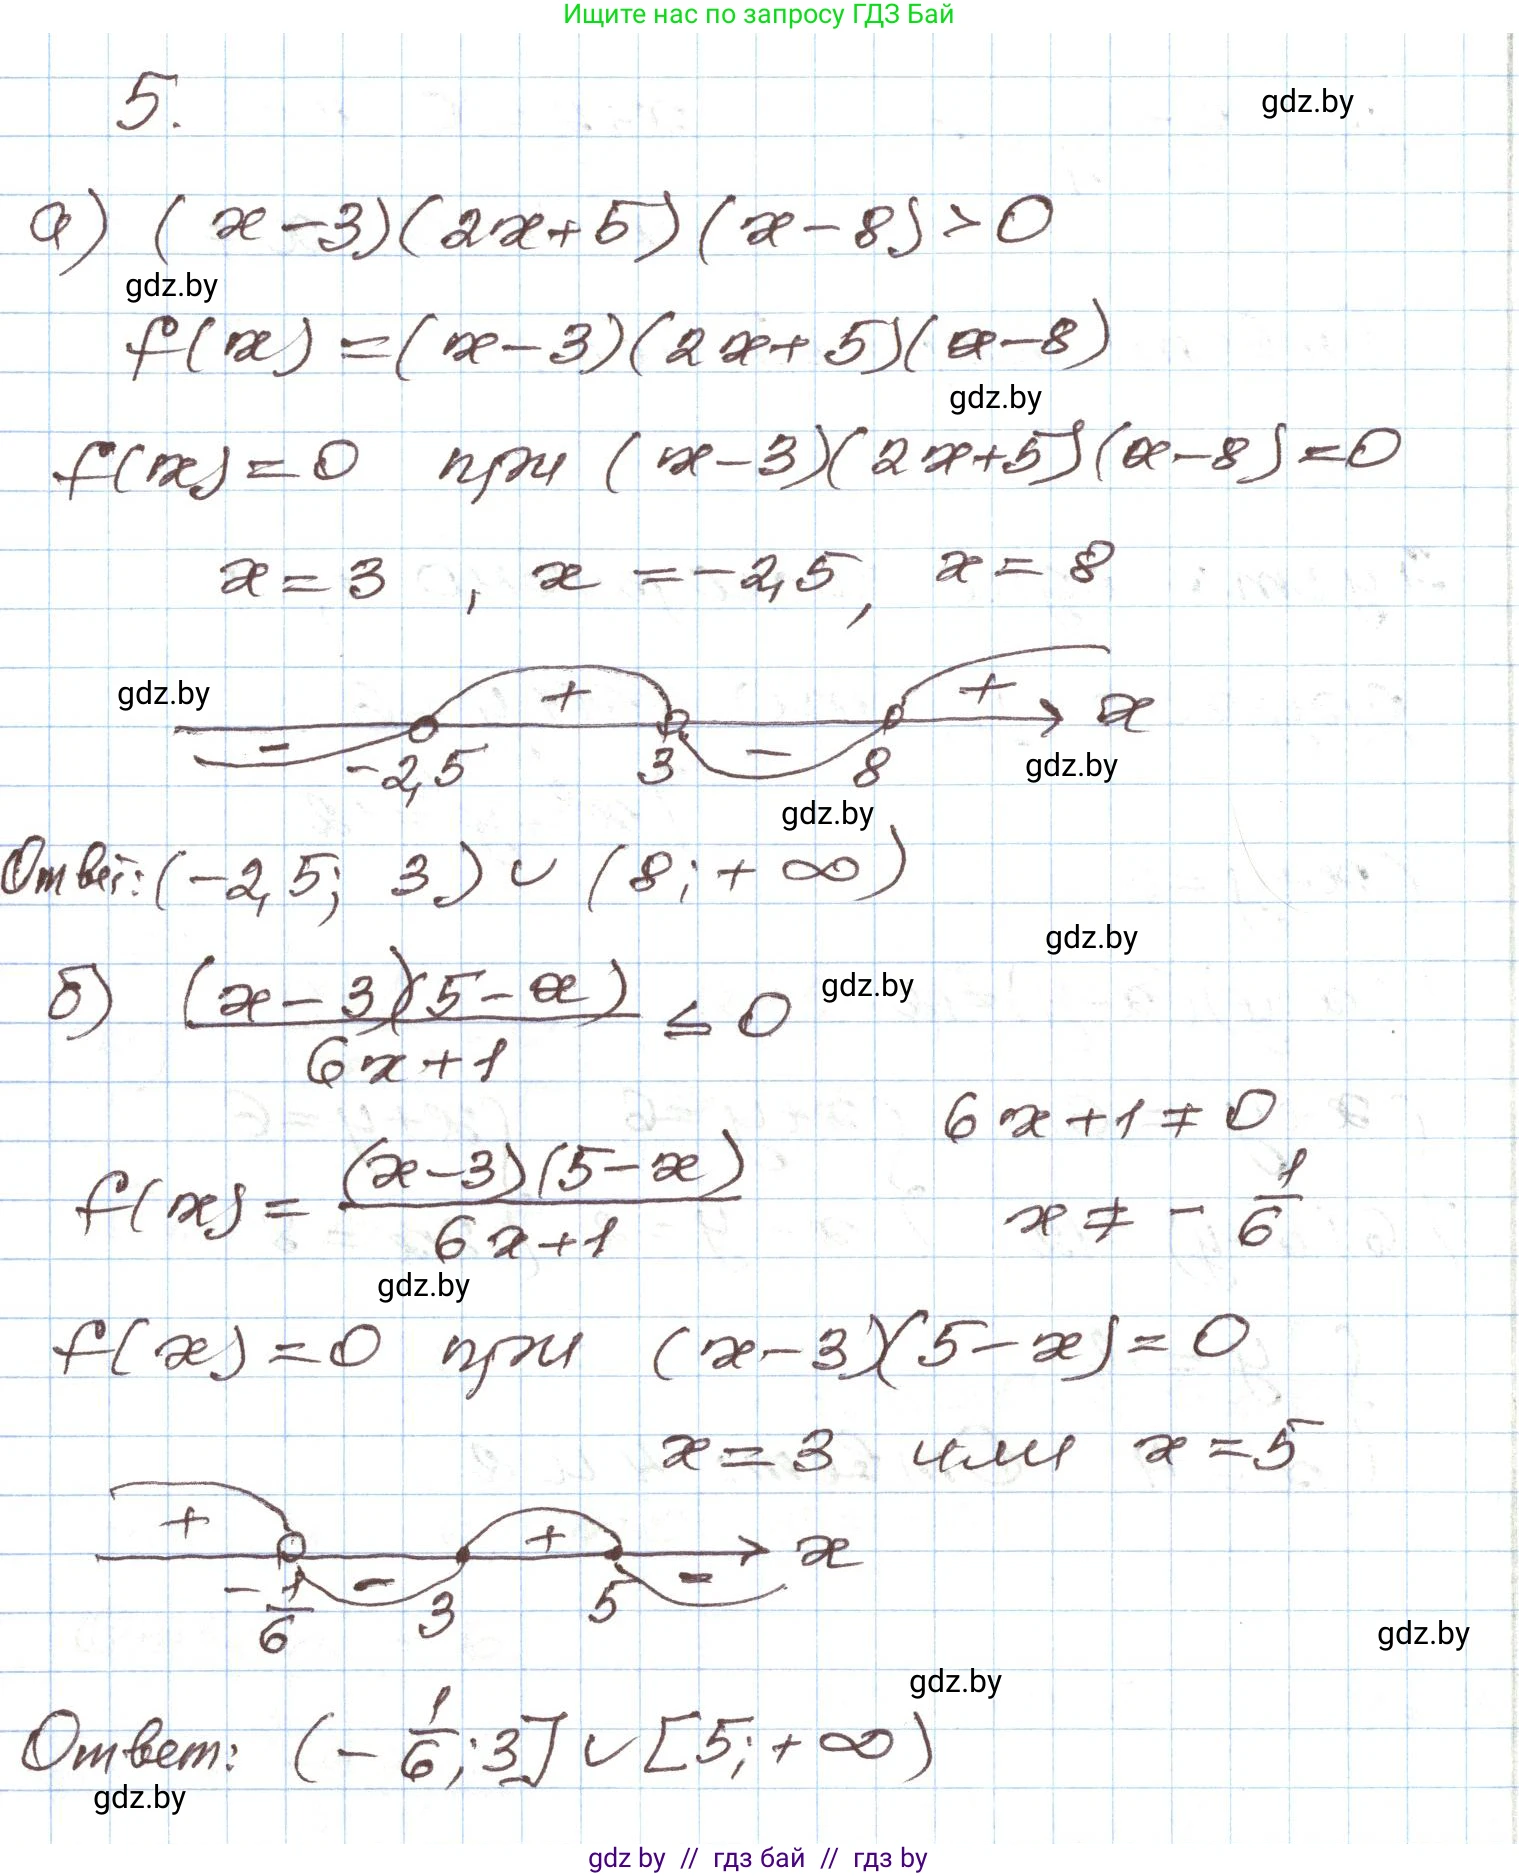 Ищите нас по запросу ГДЗ Бай
5.
gdz.by
а) (x-3)(2x+5)(x-8)>0
gdz.by
f(x)=(x-3)(2x+5)(x-8)
gdz.by
f(x)=0 при (x-3)(2x+5)(x-8)=0
x=3, x=-2,5, x=8
gdz.by
- + - + x
-2,5 3 8
gdz.by
gdz.by
Ответ: (-2,5; 3) ∪ (8; +∞)
gdz.by
б) (x-3)(5-x)/6x+1 ≤ 0
gdz.by
6x+1≠0
f(x)=(x-3)(5-x)/6x+1
x≠-1/6
gdz.by
f(x)=0 при (x-3)(5-x)=0
x=3 или x=5
+ - + - x
-1/6 3 5
gdz.by
gdz.by
Ответ: (-1/6; 3] ∪ [5; +∞)
gdz.by
gdz by // гдз бай // гдз by